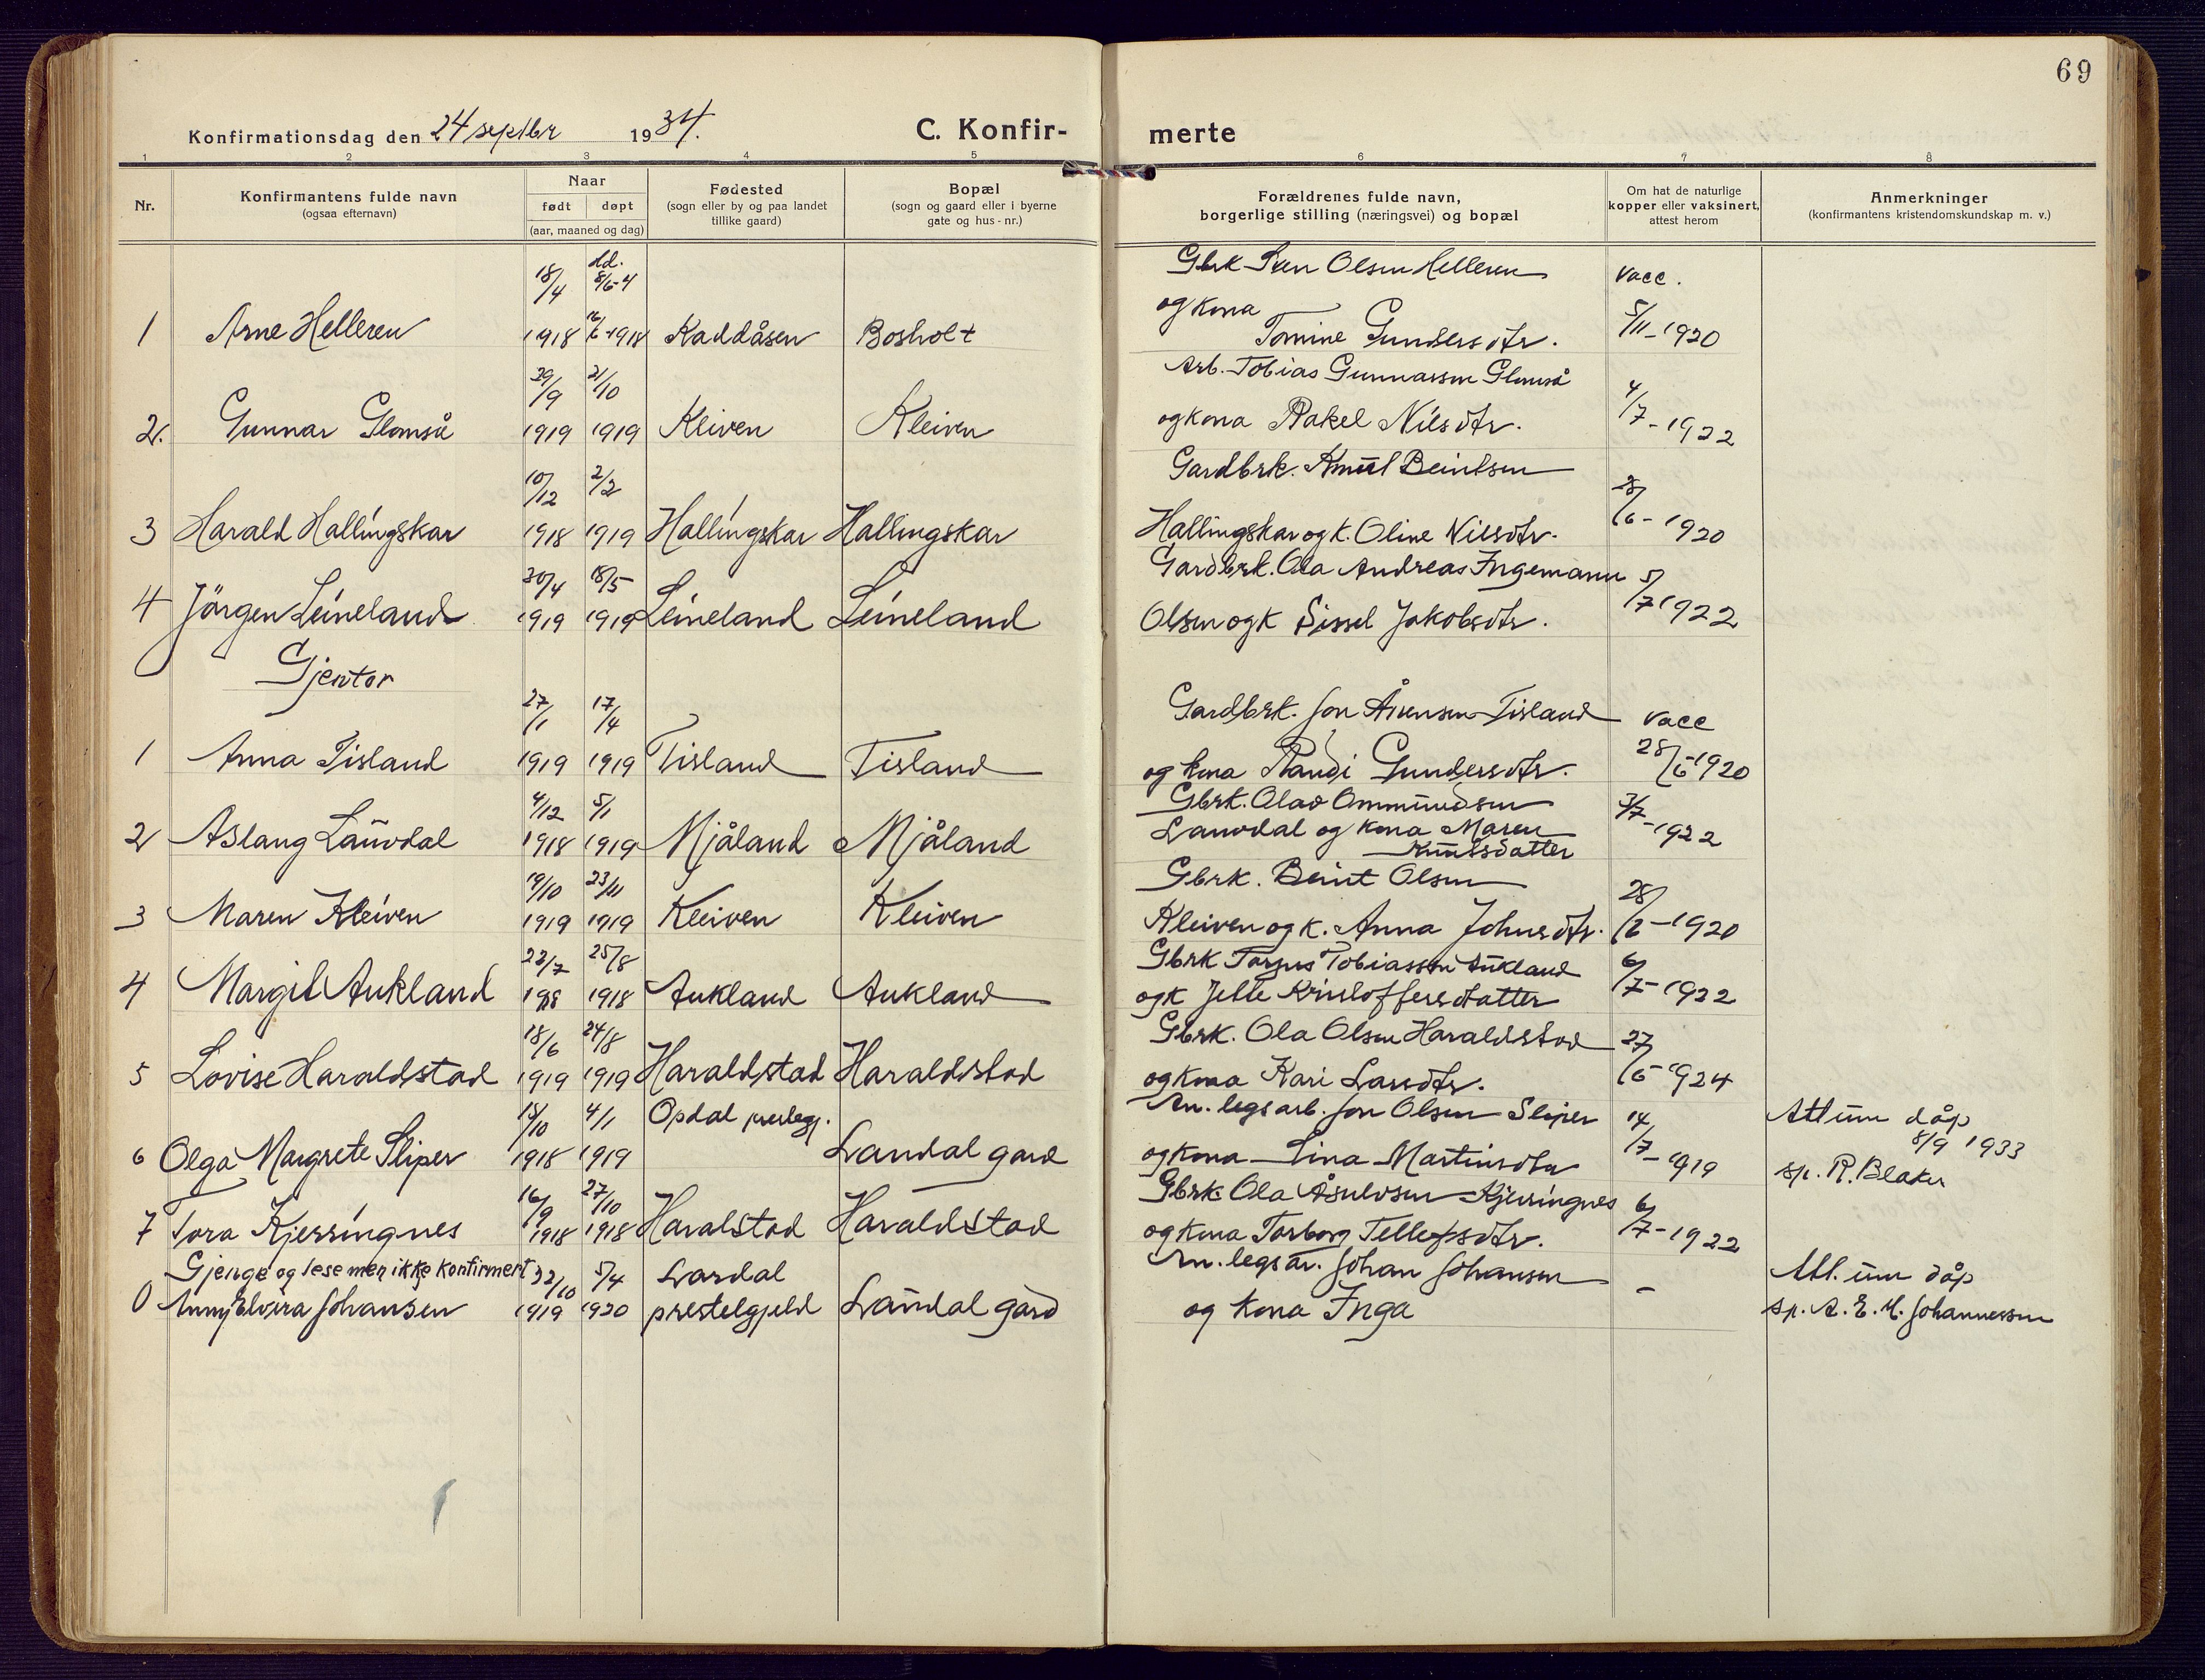 69
Konfirmationsdag den 24 septbr 1934. C. Konfir- merte
1 2 3 4 5 6 7 8
Nr. Konfirmantens fulde navn (ogsaa efternavn) Naar født døpt (aar, maaned og dag) Fødested (sogn eller by og paa landet tillike gaard) Bopæl (sogn og gaard eller i byerne gate og hus-nr.) Forældrenes fulde navn, borgerlige stilling (næringsvei) og bopæl Om hat de naturlige kopper eller vaksinert, attest herom Anmerkninger (konfirmantens kristendomskundskap m. v.)
18/4 Gbrk Sven Olsen Helleren vacc.
og kona
1 Arne Helleren 1918 Kaddåsen Bosholt Tomine Gundersdtr. 5/11-1920
29/9 21/10 Arb. Tobias Gunnarsen Glomså 4/7
2. Gunnar Glomså 1919 1919 Kleiven Kleiven og kona Rakel Nilsdtr. -1922
10/12 2/2 Gardbrk. Knut Beintsen
3 Harald Hallingskar 1918 1919 Hallingskar Hallingskar Hallingskar og k. Oline Nilsdtr. 6-1920
30/4 18/5 Gardbrk. Ola Andreas Ingemann 5/7
4 Jörgen Leineland 1919 1919 Leineland Leineland Olsen og k Sissel Jakobsdtr. 1922
Gjentor
27/1 17/4 Gardbrk. Jon Åvensen Tisland vacc
1 Anna Tisland 1919 1919 Tisland Tisland og kona Randi Gundersdtr. 28/5-1920
4/12 5/1 Gbrk. Olav Ommundsen 3/7
2 Aslaug Lauvdal 1918 1919 Mjåland Mjåland Lauvdal og kona Maren -1922
Knutsdatter
19/10 23/11 Gbrk. Beint Olsen 28
3 Maren Kleiven 1919 1919 Kleiven Kleiven Kleiven og k. Anna Johnsdtr. /6-1920
22/7 25/8 Gbrk Torjus Tobiassen Aukland 6
4 Margit Aukland 1918 1918 Aukland Aukland og k Jelle Kristoffersdatter /7-1922
18/6 24/8 Gbrk. Ola Olsen Haraldstad 27
5 Lovise Haraldstad 1919 1919 Haraldstad Haraldstad og kona Kari Larsdtr. /6-1924
15/10 4/1 Opdal prestegj. An.legsarb. Jon Olsen Sliper 14 Att um dåp
6 Olga Margrete Sliper 1918 1919 Laudal gard og kona Lina Martinsdtr /7-1919 8/9 1933
sp. R. Blaker
16/9 27/10 Gbrk. Ola Åsulvsen Kjerringnes 6
7 Tora Kjerringnes 1918 1918 Haralstad Haraldstad og kona Torborg Tellefsdtr. /7-1922
Gjenge og lese men ikke konfirmert 22/10 5/4 Lardal An.legsar. Johan Johansen - Att. um dåp
0 Anny Elvira Johansen 1919 1920 prestelgjeld Laudal gard og kona Inga sp. A. E. M. Johannessen